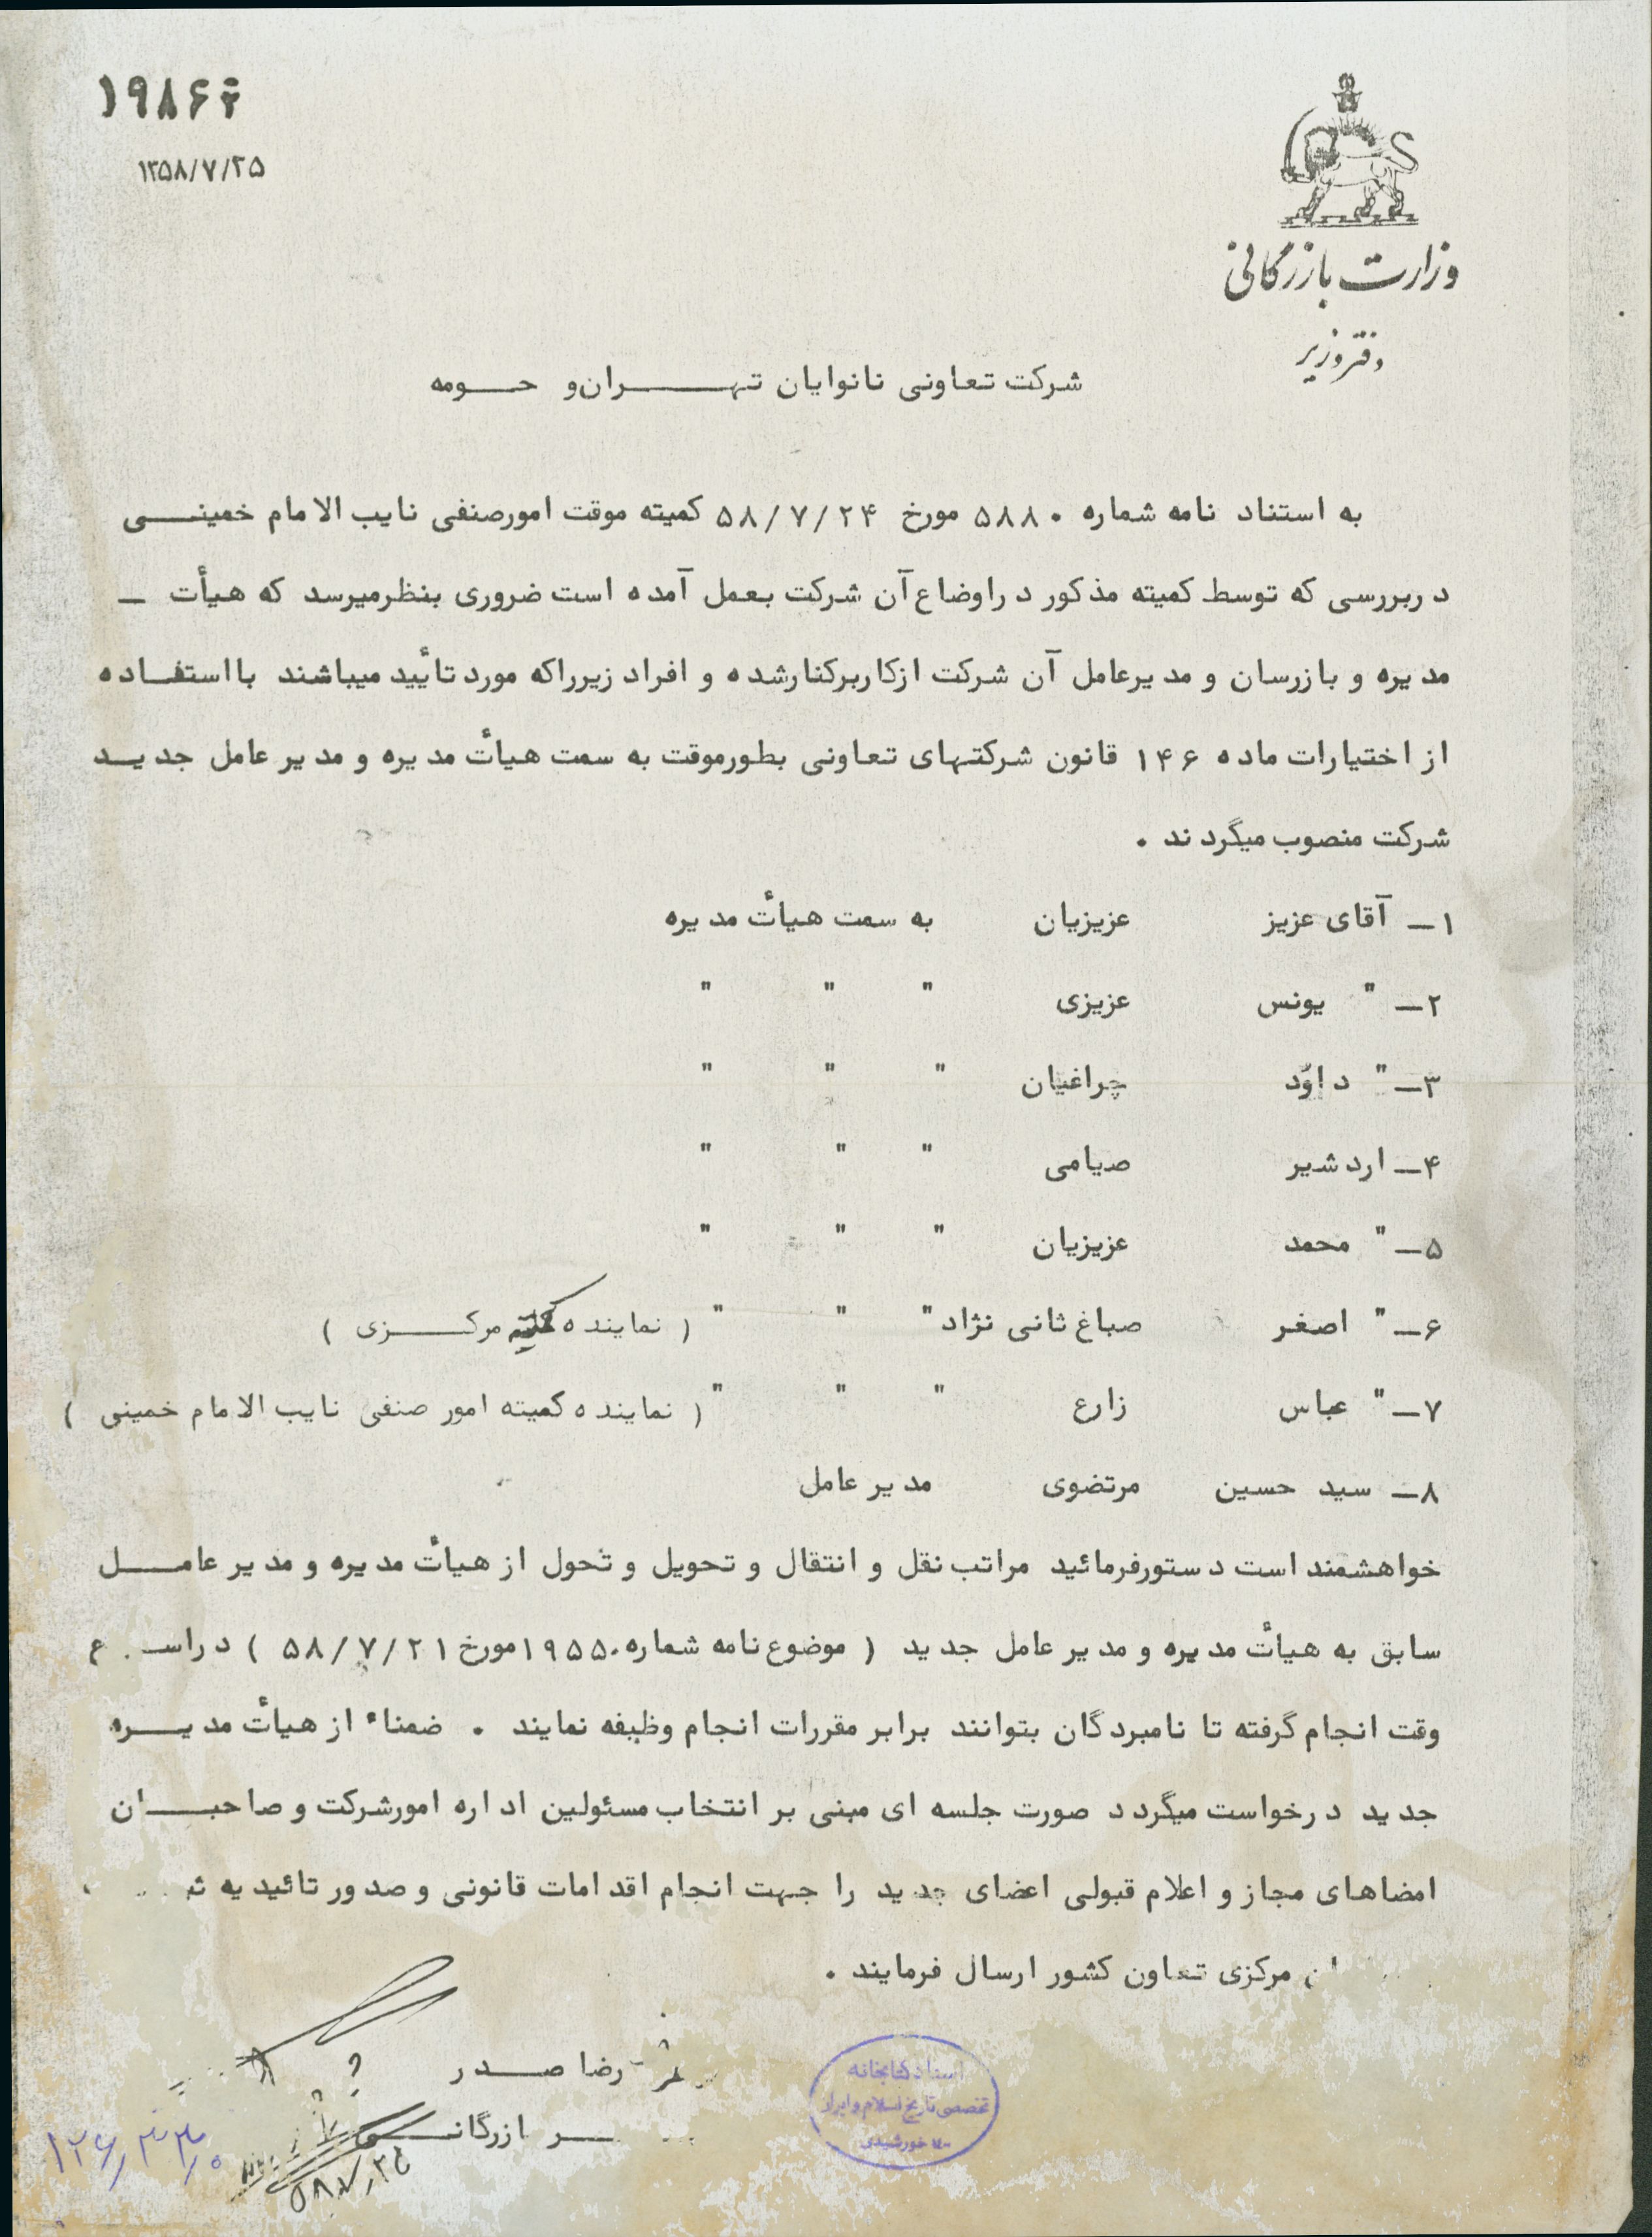 ۱۳۵۸/۷/۲۵
وزارت بازرگانی
دفتر وزیر
شرکت تعاونی نانوایان تهران و حومه
به استناد نامه شماره ۵۸۸۰ مورخ ۵۸/۷/۲۴ کمیته موقت امورصنفی نایب الامام خمینی
دربررسی که توسط کمیته مذکور دراوضاع آن شرکت بعمل آمده است ضروری بنظرمیرسد که هیأت ــ
مدیره و بازرسان و مدیرعامل آن شرکت ازکاربرکنارشده و افراد زیرراکه مورد تأیید میباشند بااستفاده
از اختیارات ماده ۱۴۶ قانون شرکتهای تعاونی بطورموقت به سمت هیأت مدیره و مدیر عامل جدید
شرکت منصوب میگردند .
۱ــ آقای عزیز عزیزیان به سمت هیأت مدیره
۲ــ " یونس عزیزی " " "
۳ــ " داوّد چراغیان " " "
۴ــ اردشیر صیامی " " "
۵ــ " محمد عزیزیان " " "
۶ــ " اصغر صباغ ثانی نژاد " " " ( نماینده کمیته مرکزی )
۷ــ " عباس زارع " " " ( نماینده کمیته امور صنفی نایب الامام خمینی )
۸ــ سید حسین مرتضوی مدیر عامل
خواهشمند است دستورفرمائید مراتب نقل و انتقال و تحویل و تحول از هیأت مدیره و مدیر عامل
سابق به هیأت مدیره و مدیر عامل جدید ( موضوع نامه شماره ۱۹۵۵۰ مورخ ۵۸/۷/۲۱ ) دراسرع
وقت انجام گرفته تا نامبردگان بتوانند برابر مقررات انجام وظیفه نمایند . ضمناء از هیأت مدیره
جدید درخواست میگردد صورت جلسه ای مبنی بر انتخاب مسئولین اداره امورشرکت و صاحبان
امضاهای مجاز و اعلام قبولی اعضای جدید را جهت انجام اقدامات قانونی و صدور تائیدیه
مرکزی تعاون کشور ارسال فرمایند .
رضا صدر
اسناد کتابخانه
تخصصی تاریخ اسلام و ایران